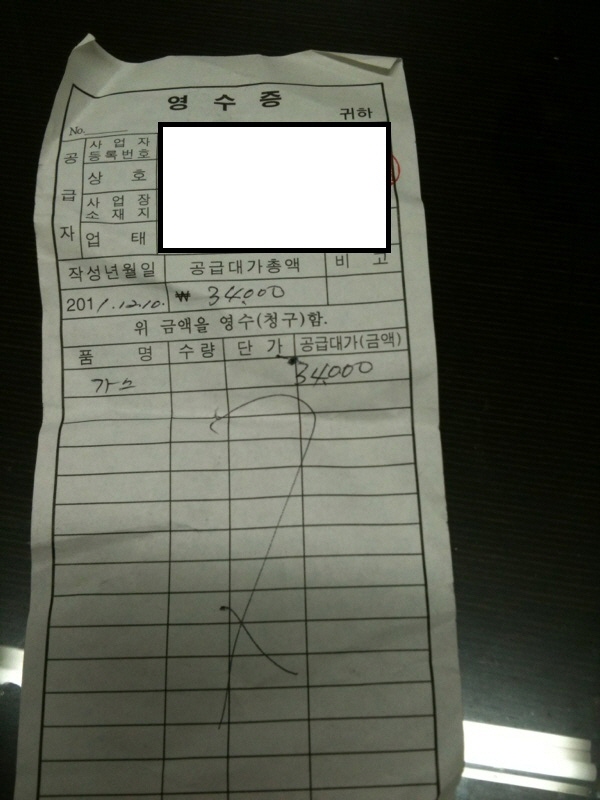 영 수 증
귀하
No.
공급자
사 업 자
등록번호
상 호
사 업 장
소 재 지
업 태
작성년월일 공급대가총액 비 고
2011.12.10. ₩ 34,000
위 금액을 영수(청구)함.
품 명 수량 단 가 공급대가(금액)
가스 34,000